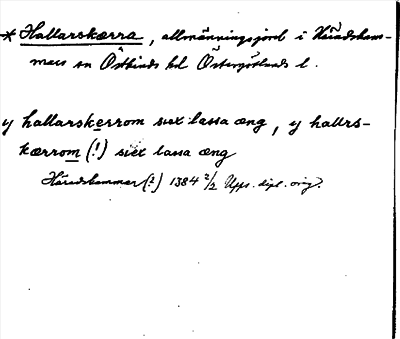 * Hallarskærra, allmänningsjord i Häradsham-
mars sn Östkinds hd Östergötlands l.
y hallarskerrom siex lassa æng, y hallrs-
kærrom (!) siex lassa æng
Häradshammar(?) 1384 2/2 Upps. dipl. orig.